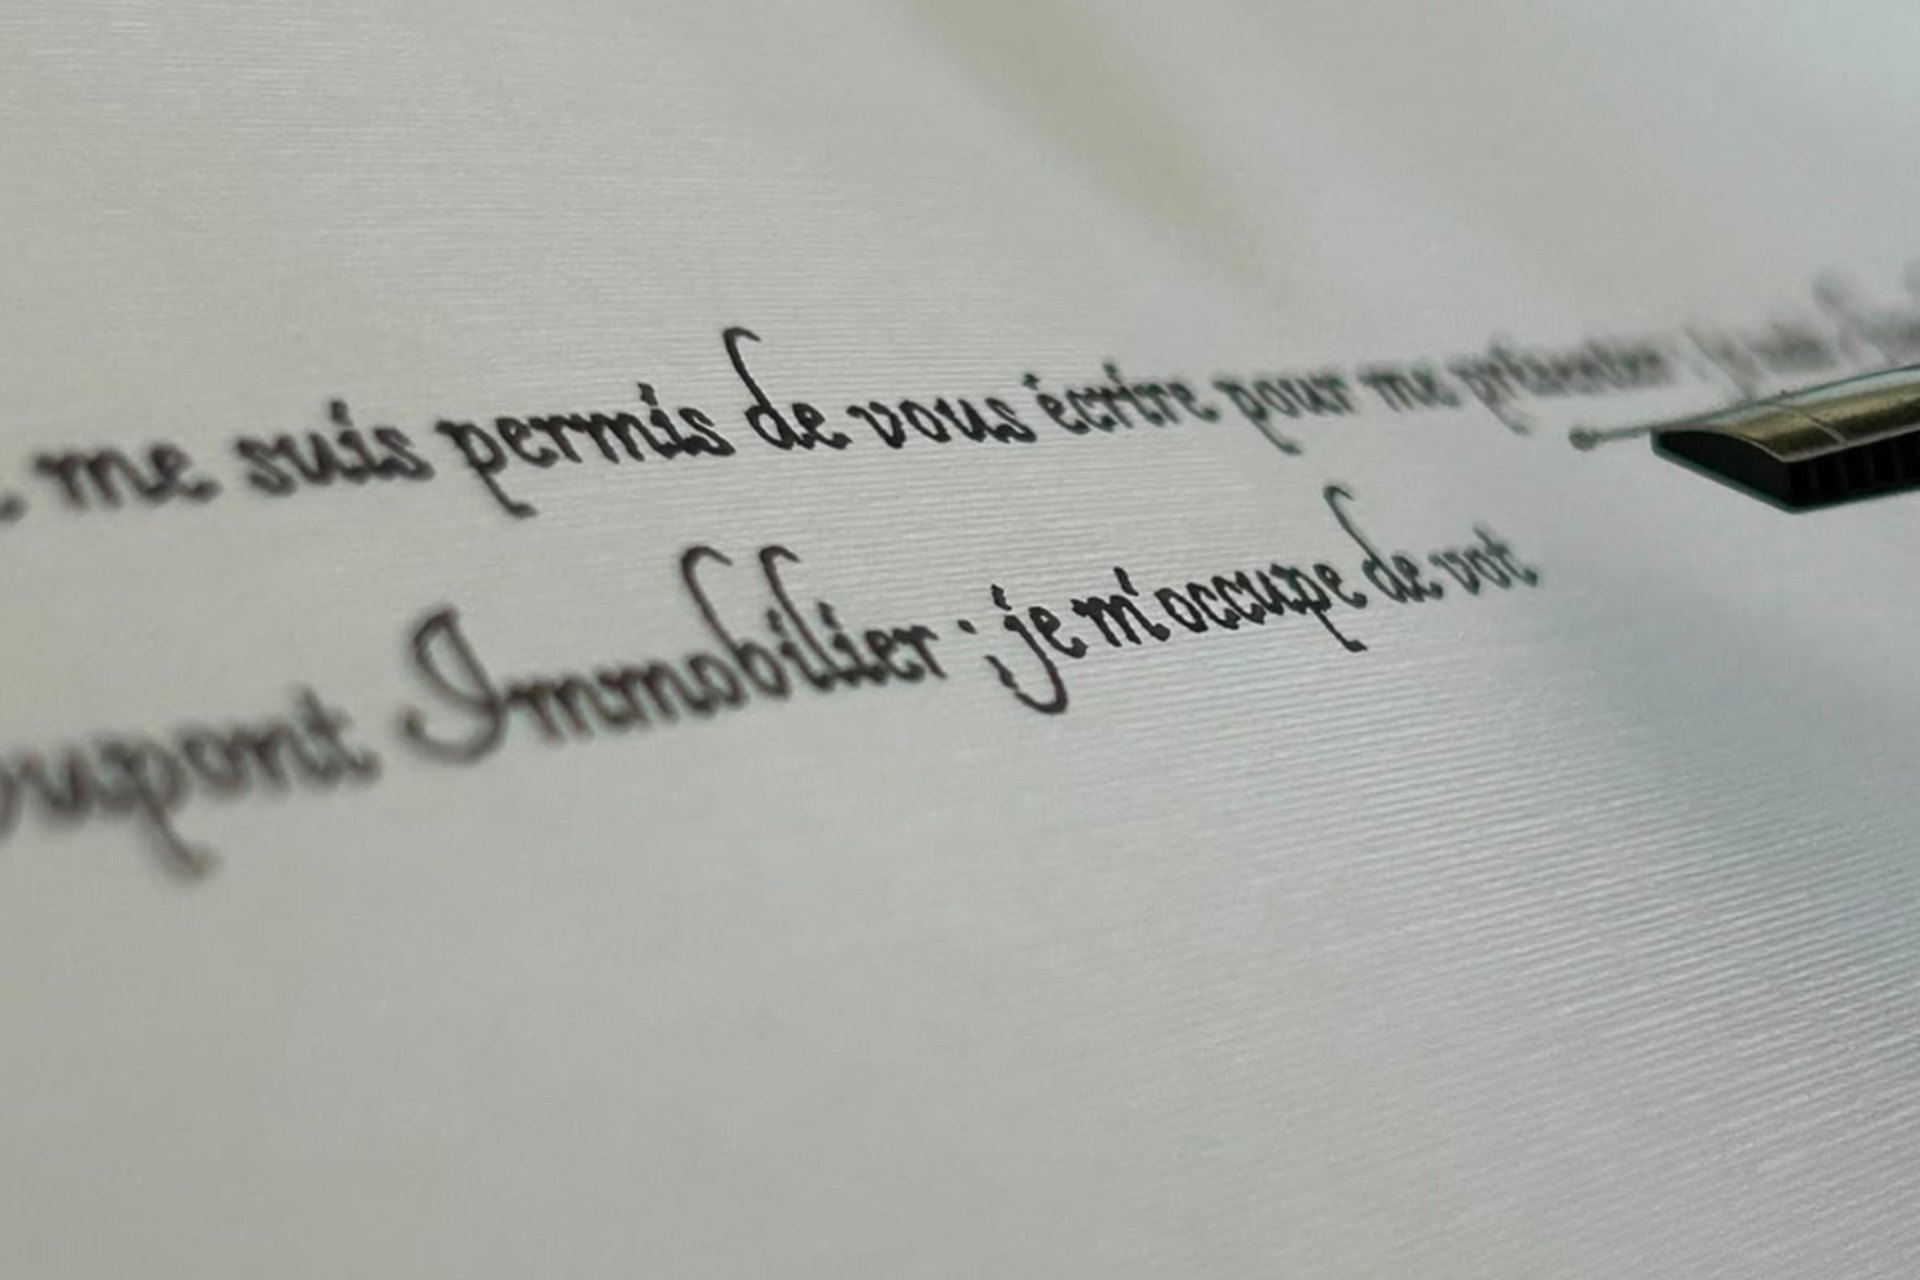 me suis permis de vous écrire pour me présenter :
oupont Immobilier : je m'occupe de vot